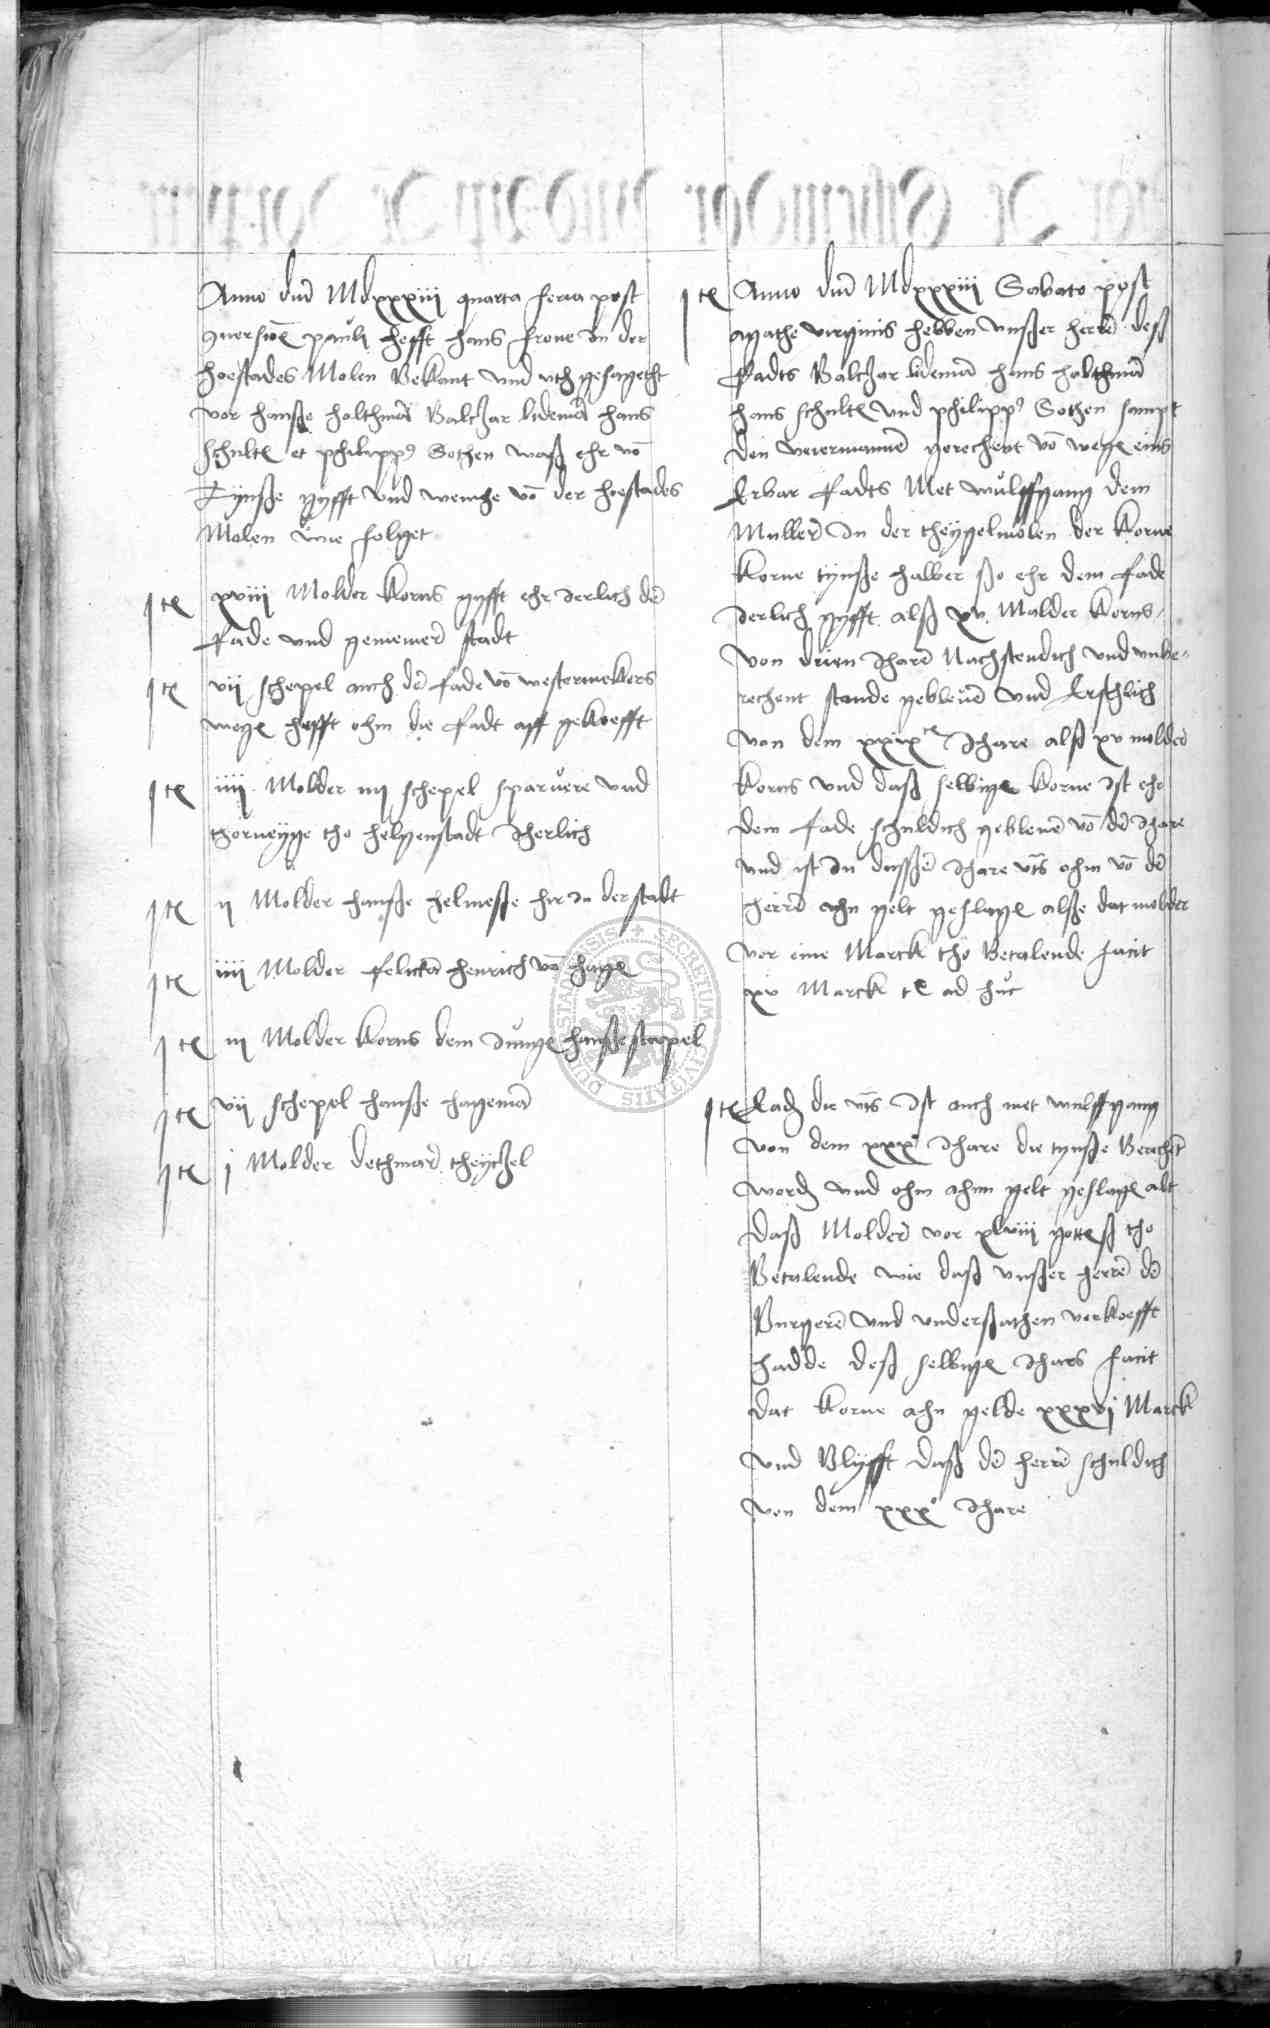 Anno dnī Mdxxxiii quarta feria post
9uersiōe pauli hefft hans frone Jn der
hoestades Molen Bekant vnd vth gesagetht
vor hanße holthmā Baltzar lidemā hans
schulte et philipp9 Sothen waß ehr vō
Tynße gyfft vnd weniche vō der hoestades
Molen wue folget
Jtē xviii Molder Korns gyfft ehr Jerlich dē
Rade vnd gemeiner stadt
Jtē vij schepel auch dē Rade vō westermekers
wege hefft ohm die Radt aff gekoefft
Jtē iiij Molder iiij schepel sparuere vnd
thorneyge tho helgenstadt Jherlich
Jtē ij Molder hanße helmeße hir Jn der stadt
Jtē iiij Molder henrich vō hage
Jtē iij Molder Korns dem Junge hanße stapel
Jtē vij schepel hanße hagemā
Jtē j Molder dethmar theytzel
Jtē Anno dnī Mdxxxiii Sabato post
agathe virginis hebben vnßer herrē deß
Radts Baltzar lidemā hans holthmā
hans schulte vnd philipp9 Sothen sampt
den veiermannē gerechent vō wege eins
Erbar Radts Met wulffgang dem
Mullerē Jn der theygelmolen der Korne
Korne tynße halber ßo ehr dem Rade
Jerlich gyfft alß xv Molder Korns
von drien Jharē Nachstendich vnd vnbe-
rechent stande gebleuē vnd Erstlich
von dem xxix Jhare alß xv molder
Korns vnd daß selbige Korne Jst ehr
dem Rade schuldich gebleuē vō dē Jhare
vnd ist Jn dußßē Jhare vts ohm vō dē
herrē ahn gelt geslage alße dat molder
vor eine Marck tho Betalende facit
xv Marck tē ad huc
Jtē Eadē die vts Jst auch met wulffgang
von dem xxx Jhare die tynße Berechēt
wordē vnd ohm ahnn gelt geslage alt
daß Molder vor xlviii gotteß tho
Betalende wie daß vnßer herrē dē
Burgerē vnd vnderßathen verkoefft
hadde deß selbige Jhars facit
dat Korne ahn gelde xxxvj Marck
vnd Blyfft daß dē herrē schuldich
von dem xxx° Jhare